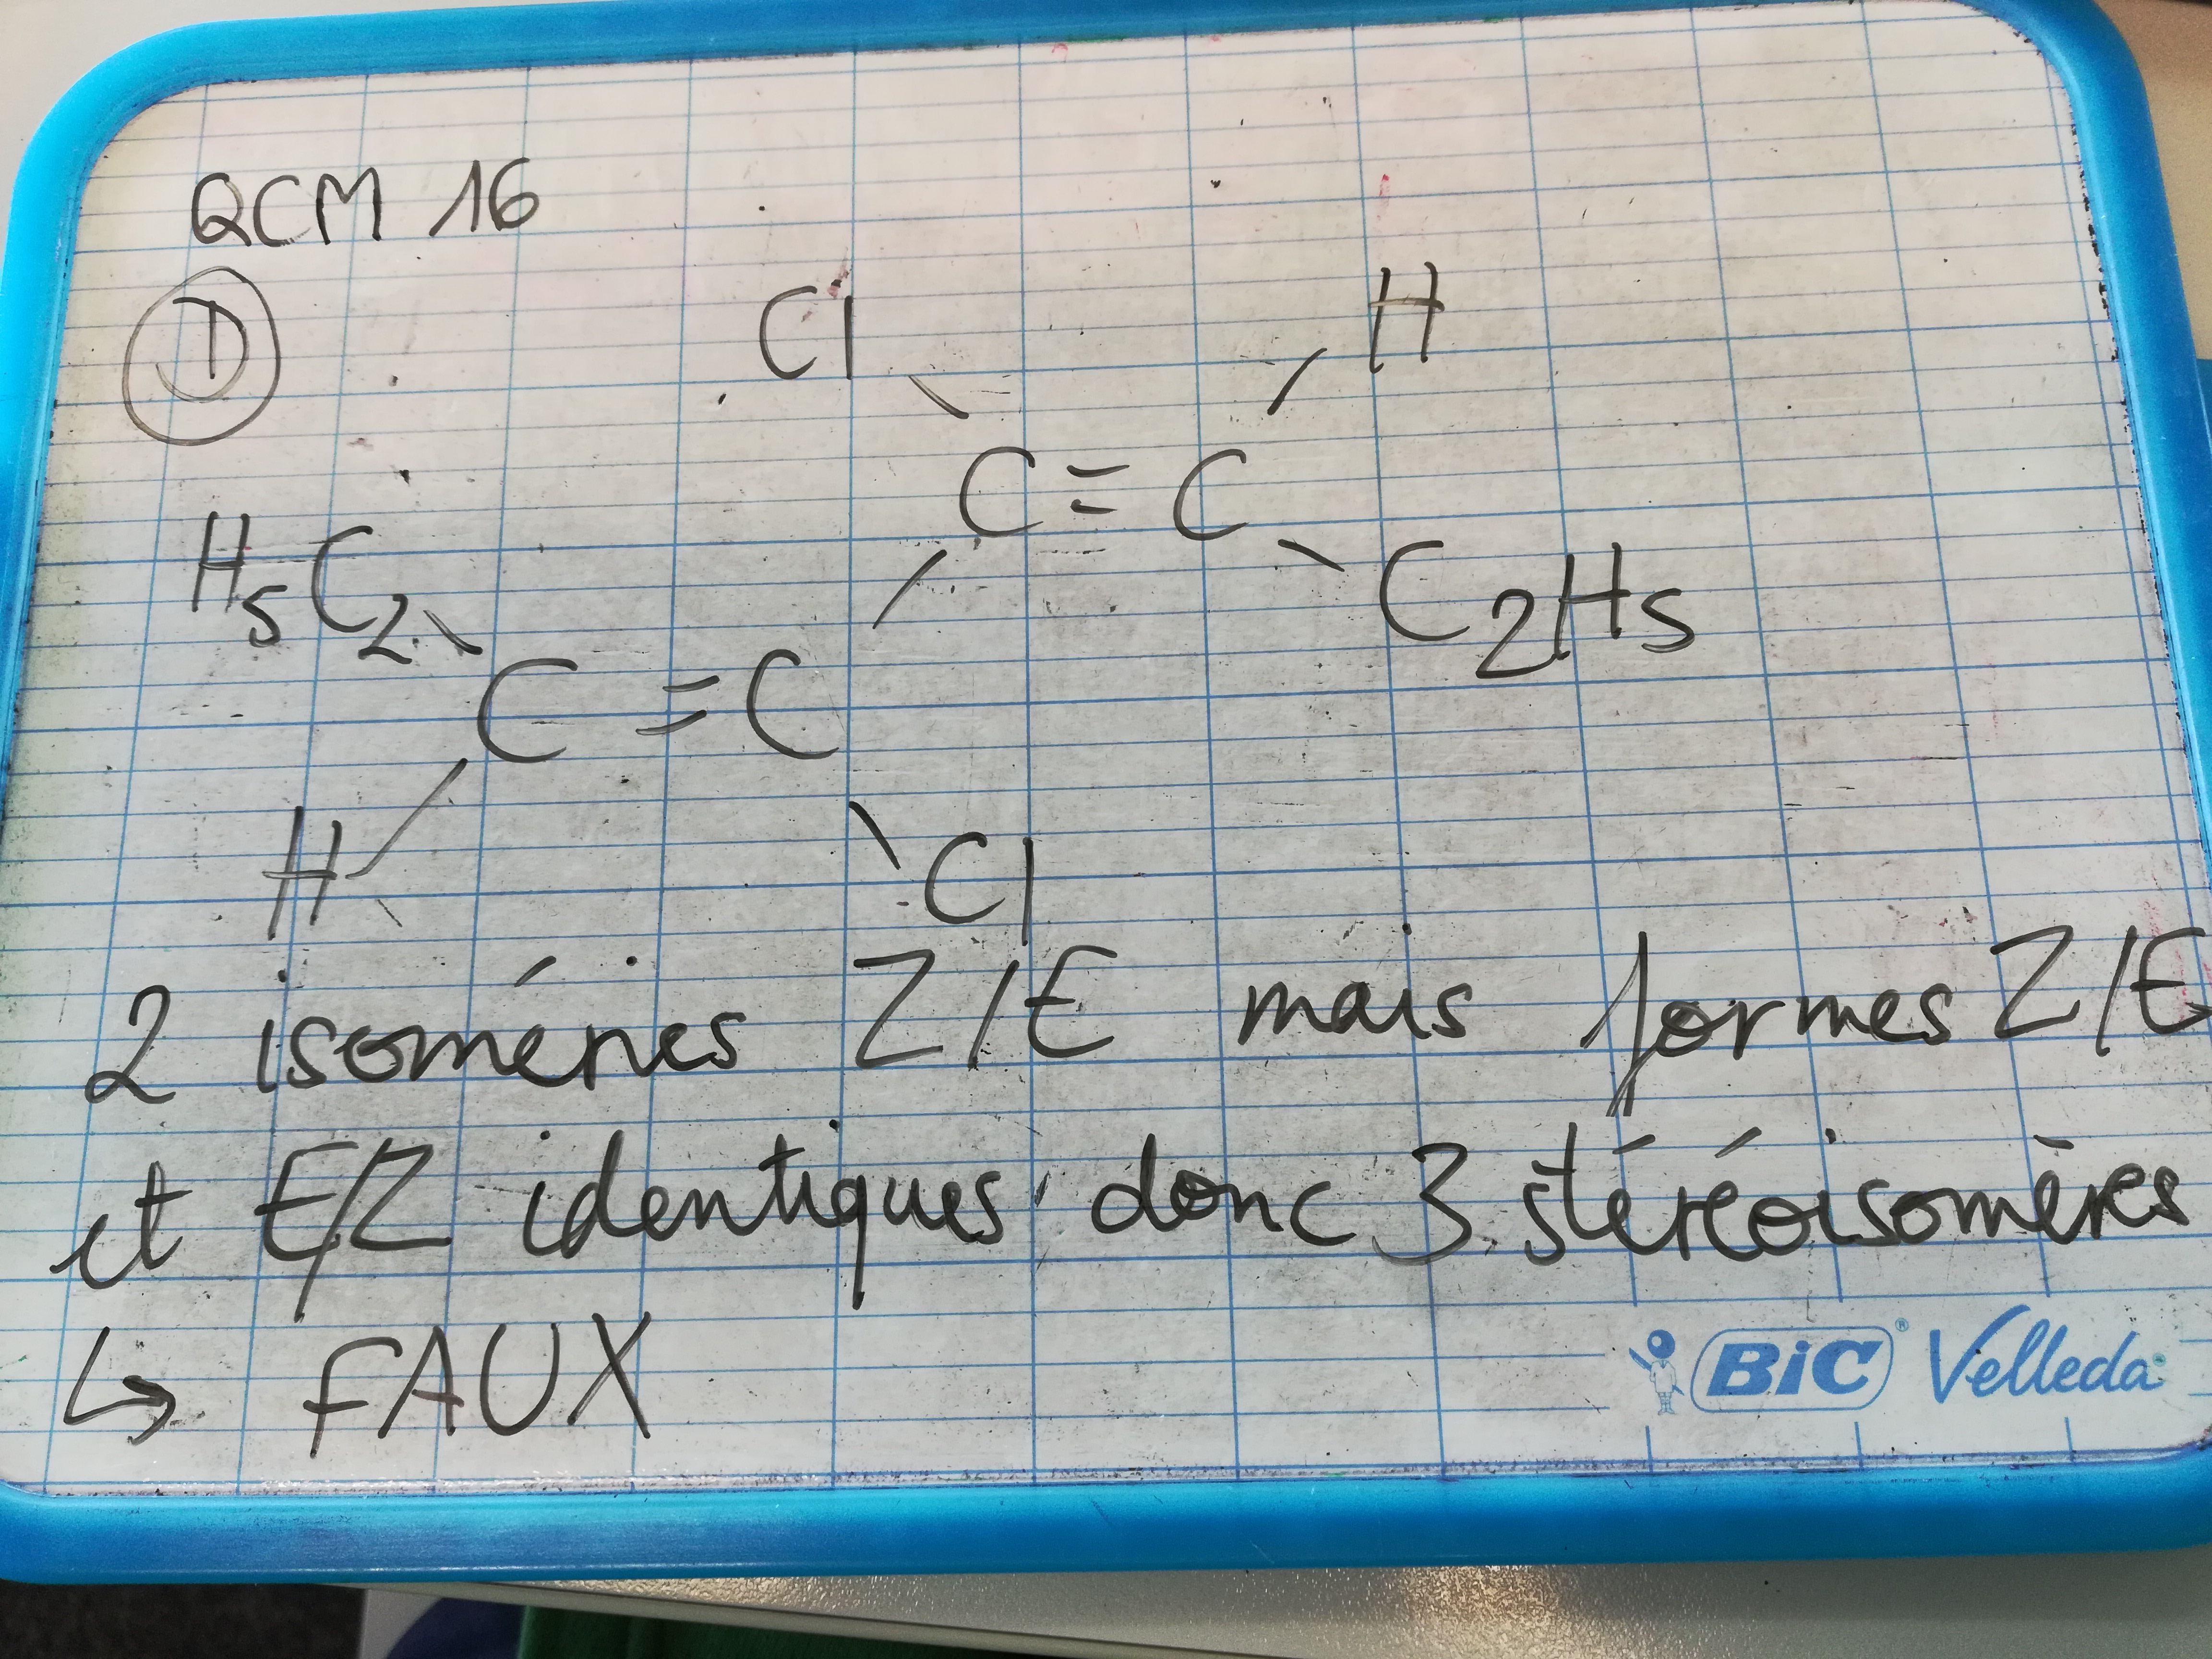 QCM 16
D
Cl H
C = C
H5C2 C2H5
C = C
H Cl
2 isoméries Z/E mais formes Z/E
et E/Z identiques donc 3 stéréoisomères
↳ FAUX
BiC® Velleda